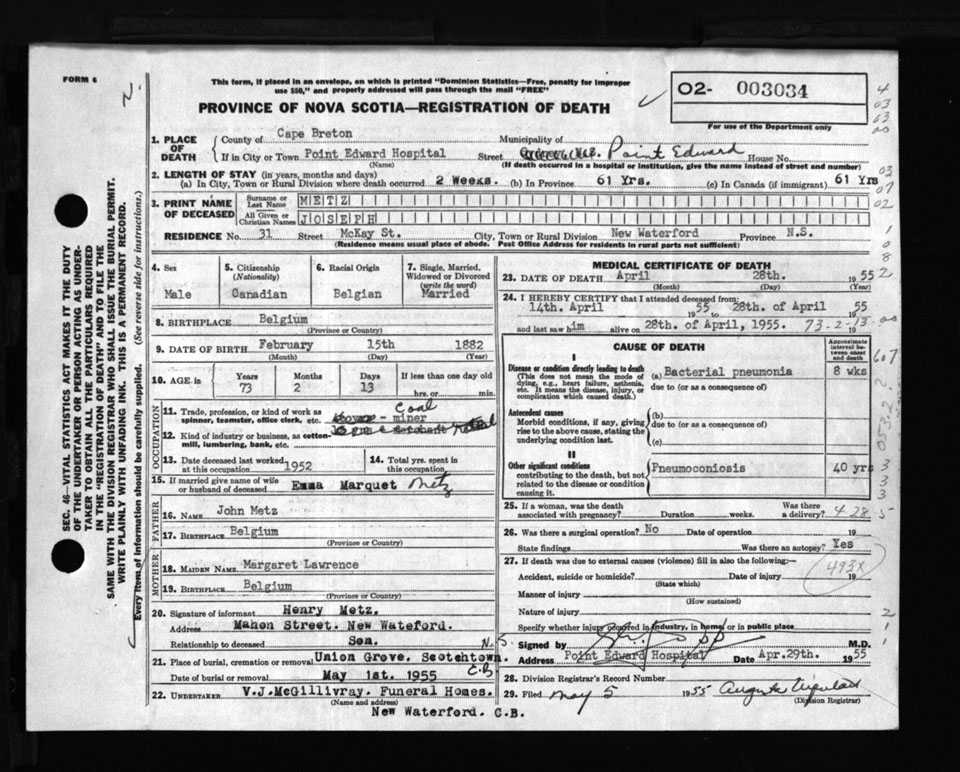 FORM 6
This form, if placed in an envelope, on which is printed "Dominion Statistics—Free, penalty for improper
use $50," and properly addressed will pass through the mail "FREE"
PROVINCE OF NOVA SCOTIA—REGISTRATION OF DEATH
O2- 003034
For use of the Department only
SEC. 46—VITAL STATISTICS ACT MAKES IT THE DUTY
OF THE UNDERTAKER OR PERSON ACTING AS UNDER-
TAKER TO OBTAIN ALL THE PARTICULARS REQUIRED
IN THE "REGISTRATION OF DEATH" AND TO FILE THE
SAME WITH THE DIVISION REGISTRAR WHO SHALL ISSUE THE BURIAL PERMIT.
WRITE PLAINLY WITH UNFADING INK. THIS IS A PERMANENT RECORD.
Every item of information should be carefully supplied. (See reverse side for instructions.)
1. PLACE OF DEATH County of Cape Breton Municipality of
If in City or Town Point Edward Hospital Street Point Edward House No.
(Name) (If death occurred in a hospital or institution, give the name instead of street and number)
2. LENGTH OF STAY (in years, months and days)
(a) In City, Town or Rural Division where death occurred 2 Weeks. (b) In Province 61 Yrs. (c) In Canada (if immigrant) 61 Yrs
3. PRINT NAME OF DECEASED Surname or Last Name METZ
All Given or Christian Names JOSEPH
RESIDENCE No. 31 Street McKay St. City, Town or Rural Division New Waterford Province N.S.
(Residence means usual place of abode. Post Office Address for residents in rural parts not sufficient)
4. Sex Male
5. Citizenship (Nationality) Canadian
6. Racial Origin Belgian
7. Single, Married, Widowed or Divorced (write the word) Married
8. BIRTHPLACE Belgium
(Province or Country)
9. DATE OF BIRTH February 15th 1882
(Month) (Day) (Year)
10. AGE in Years 73 Months 2 Days 13 If less than one day old
hrs. or min.
OCCUPATION
11. Trade, profession, or kind of work as spinner, teamster, office clerk, etc. Coal - miner
12. Kind of industry or business, as cotton-mill, lumbering, bank, etc.
13. Date deceased last worked at this occupation 1952
14. Total yrs. spent in this occupation
15. If married give name of wife or husband of deceased Emma Marquet Metz
FATHER
16. NAME John Metz
17. BIRTHPLACE Belgium
(Province or Country)
MOTHER
18. MAIDEN NAME Margaret Lawrence
19. BIRTHPLACE Belgium
(Province or Country)
20. Signature of informant Henry Metz.
Address Mahon Street. New Wateford.
Relationship to deceased Son. N.S.
21. Place of burial, cremation or removal Union Grove. Scotchtown. C.B
Date of burial or removal May 1st. 1955
22. UNDERTAKER V.J.McGillivray. Funeral Homes.
(Name and address)
New Waterford. C.B.
MEDICAL CERTIFICATE OF DEATH
23. DATE OF DEATH April 28th. 1955
(Month) (Day) (Year)
24. I HEREBY CERTIFY that I attended deceased from:
14th. April 1955 to 28th. of April 1955
and last saw him alive on 28th. of April, 1955. 73-2-13
CAUSE OF DEATH
Approximate interval between onset and death
I
Disease or condition directly leading to death
(This does not mean the mode of dying, e.g., heart failure, asthenia, etc. It means the disease, injury, or complication which caused death.)
(a) Bacterial pneumonia 8 wks
due to (or as a consequence of)
Antecedent causes
Morbid conditions, if any, giving rise to the above cause, stating the underlying condition last.
(b)
due to (or as a consequence of)
(c)
II
Other significant conditions
contributing to the death, but not related to the disease or condition causing it.
Pneumoconiosis 40 yrs
25. If a woman, was the death associated with pregnancy? Duration weeks. Was there a delivery? 4-28-5
26. Was there a surgical operation? No Date of operation 19
State findings Was there an autopsy? Yes
27. If death was due to external causes (violence) fill in also the following:—
Accident, suicide or homicide? Date of injury 19
(State which)
493X
Manner of injury
(How sustained)
Nature of injury
Specify whether injury occurred in industry, in home, or in public place
Signed by M.D.
Address Point Edward Hospital Date Apr.29th. 1955
28. Division Registrar's Record Number
29. Filed May 5 1955
(Division Registrar)